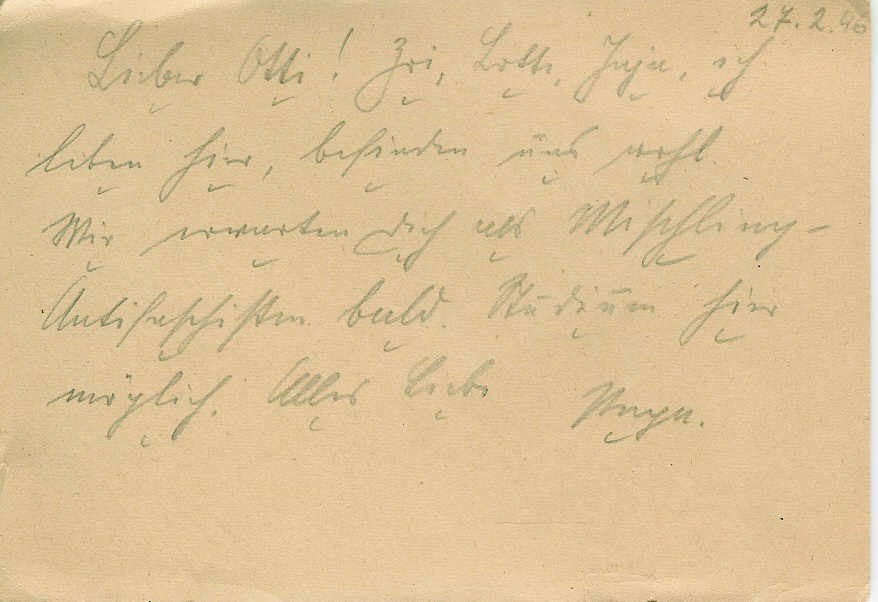 27.2.46
Lieber Otti! Zri, Lotte, Inju, ich
leben hier, befinden uns wohl.
Wir erwarten Dich als Mischling-
Antifaschisten bald. Studium hier
möglich. Alles Liebe